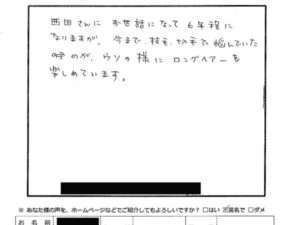 西田さんに お世話になって 6年程に
なりますが、今まで、枝毛、切れ毛で悩んでいた
のが、ウソの様に ロングヘアーを
楽しめています。
※ あなた様の声を、ホームページなどでご紹介してもよろしいですか？ □はい ☑匿名で □ダメ
お 名 前